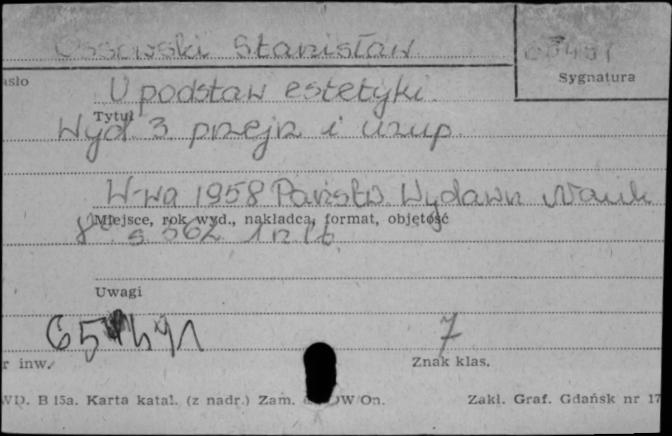 Ossowski Stanisław
Sygnatura
U podstaw estetyki.
Tytuł
Wyd. 3 przejrz i uzup.
W-wa 1958 Państw. Wydawn Nauk
Miejsce, rok wyd., nakładca, format, objętość
8° s 362 1 nlb.
Uwagi
7
r inw.
Znak klas.
WD. B 15a. Karta katal. (z nadr.) Zam.
Zakł. Graf. Gdańsk nr 17